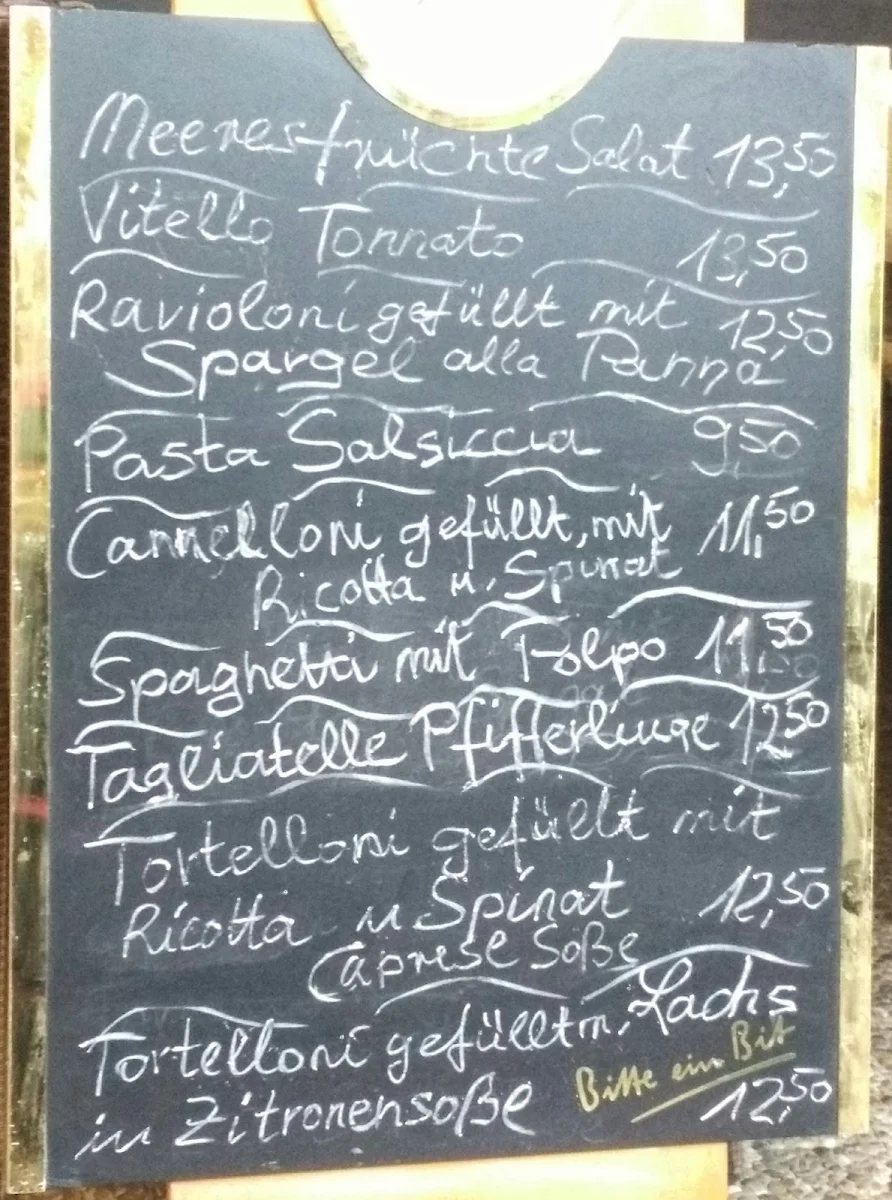 Meeresfrüchte Salat 13,50
Vitello Tonnato 13,50
Ravioloni gefüllt mit 12,50
Spargel alla Panna
Pasta Salsiccia 9,50
Cannelloni gefüllt, mit 11,50
Ricotta u. Spinat
Spaghetti mit Polpo 11,50
Tagliatelle Pfifferlinge 12,50
Tortelloni gefüllt mit
Ricotta u Spinat 12,50
Caprese Soße
Tortelloni gefüllt m. Lachs
in Zitronensoße 12,50
Bitte ein Bit